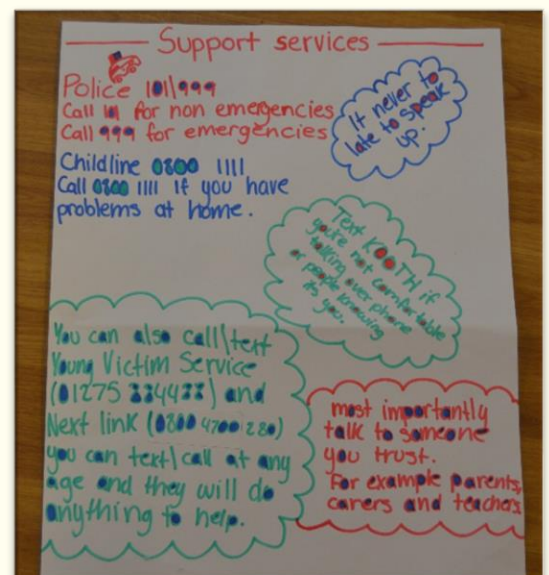 Support services
Police 101/999
Call 101 for non emergencies
Call 999 for emergencies
It never to
late to speak
up.
Childline 0800 1111
Call 0800 1111 if you have
problems at home.
Text KOOTH if
you're not comfortable
talking over phone
or people knowing
its you.
You can also call/text
Young Victim Service
(01275 884488) and
Next link (0800 4700 280)
you can text/call at any
age and they will do
anything to help.
most importantly
talk to someone
you trust.
For example parents,
carers and teachers